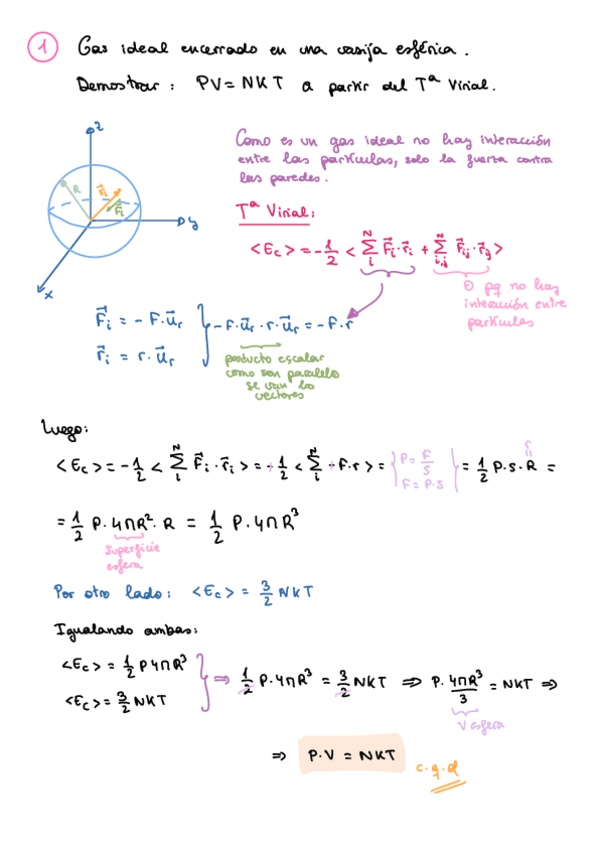 1 Gas ideal encerrado en una vasija esférica.
Demostrar: PV = NKT a partir del Tª Virial.
z
R
r⃗i
F⃗i
y
x
Como es un gas ideal no hay interacción
entre las partículas, solo la fuerza contra
las paredes.
Tª Virial:
<Ec> = -1/2 < Σ_i^N F⃗i · r⃗i + Σ_{i,j}^N F⃗ij · r⃗ij >
0 pq no hay
interacción entre
partículas
F⃗i = - F · u⃗r
r⃗i = r · u⃗r
} -F · u⃗r · r · u⃗r = -F · r
producto escalar
como son paralelo
se van los
vectores
Luego:
<Ec> = -1/2 < Σ_i^N F⃗i · r⃗i > = -1/2 < Σ_i^N -F · r > = { P = F/S F = P·S } = 1/2 P·S·R =
= 1/2 P · 4πR² · R = 1/2 P · 4πR³
Superficie
esfera
Por otro lado: <Ec> = 3/2 NKT
Igualando ambas:
<Ec> = 1/2 P4πR³
<Ec> = 3/2 NKT
} ⇒ 1/2 P · 4πR³ = 3/2 NKT ⇒ P · 4πR³/3 = NKT ⇒
V esfera
⇒ P·V = NKT
c.q.d